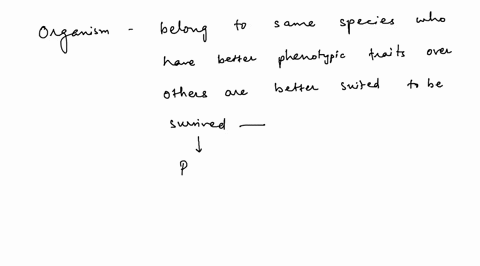 Organism - belong to same species who
have better phenotypic traits over
others are better suited to be
survived —
↓
P